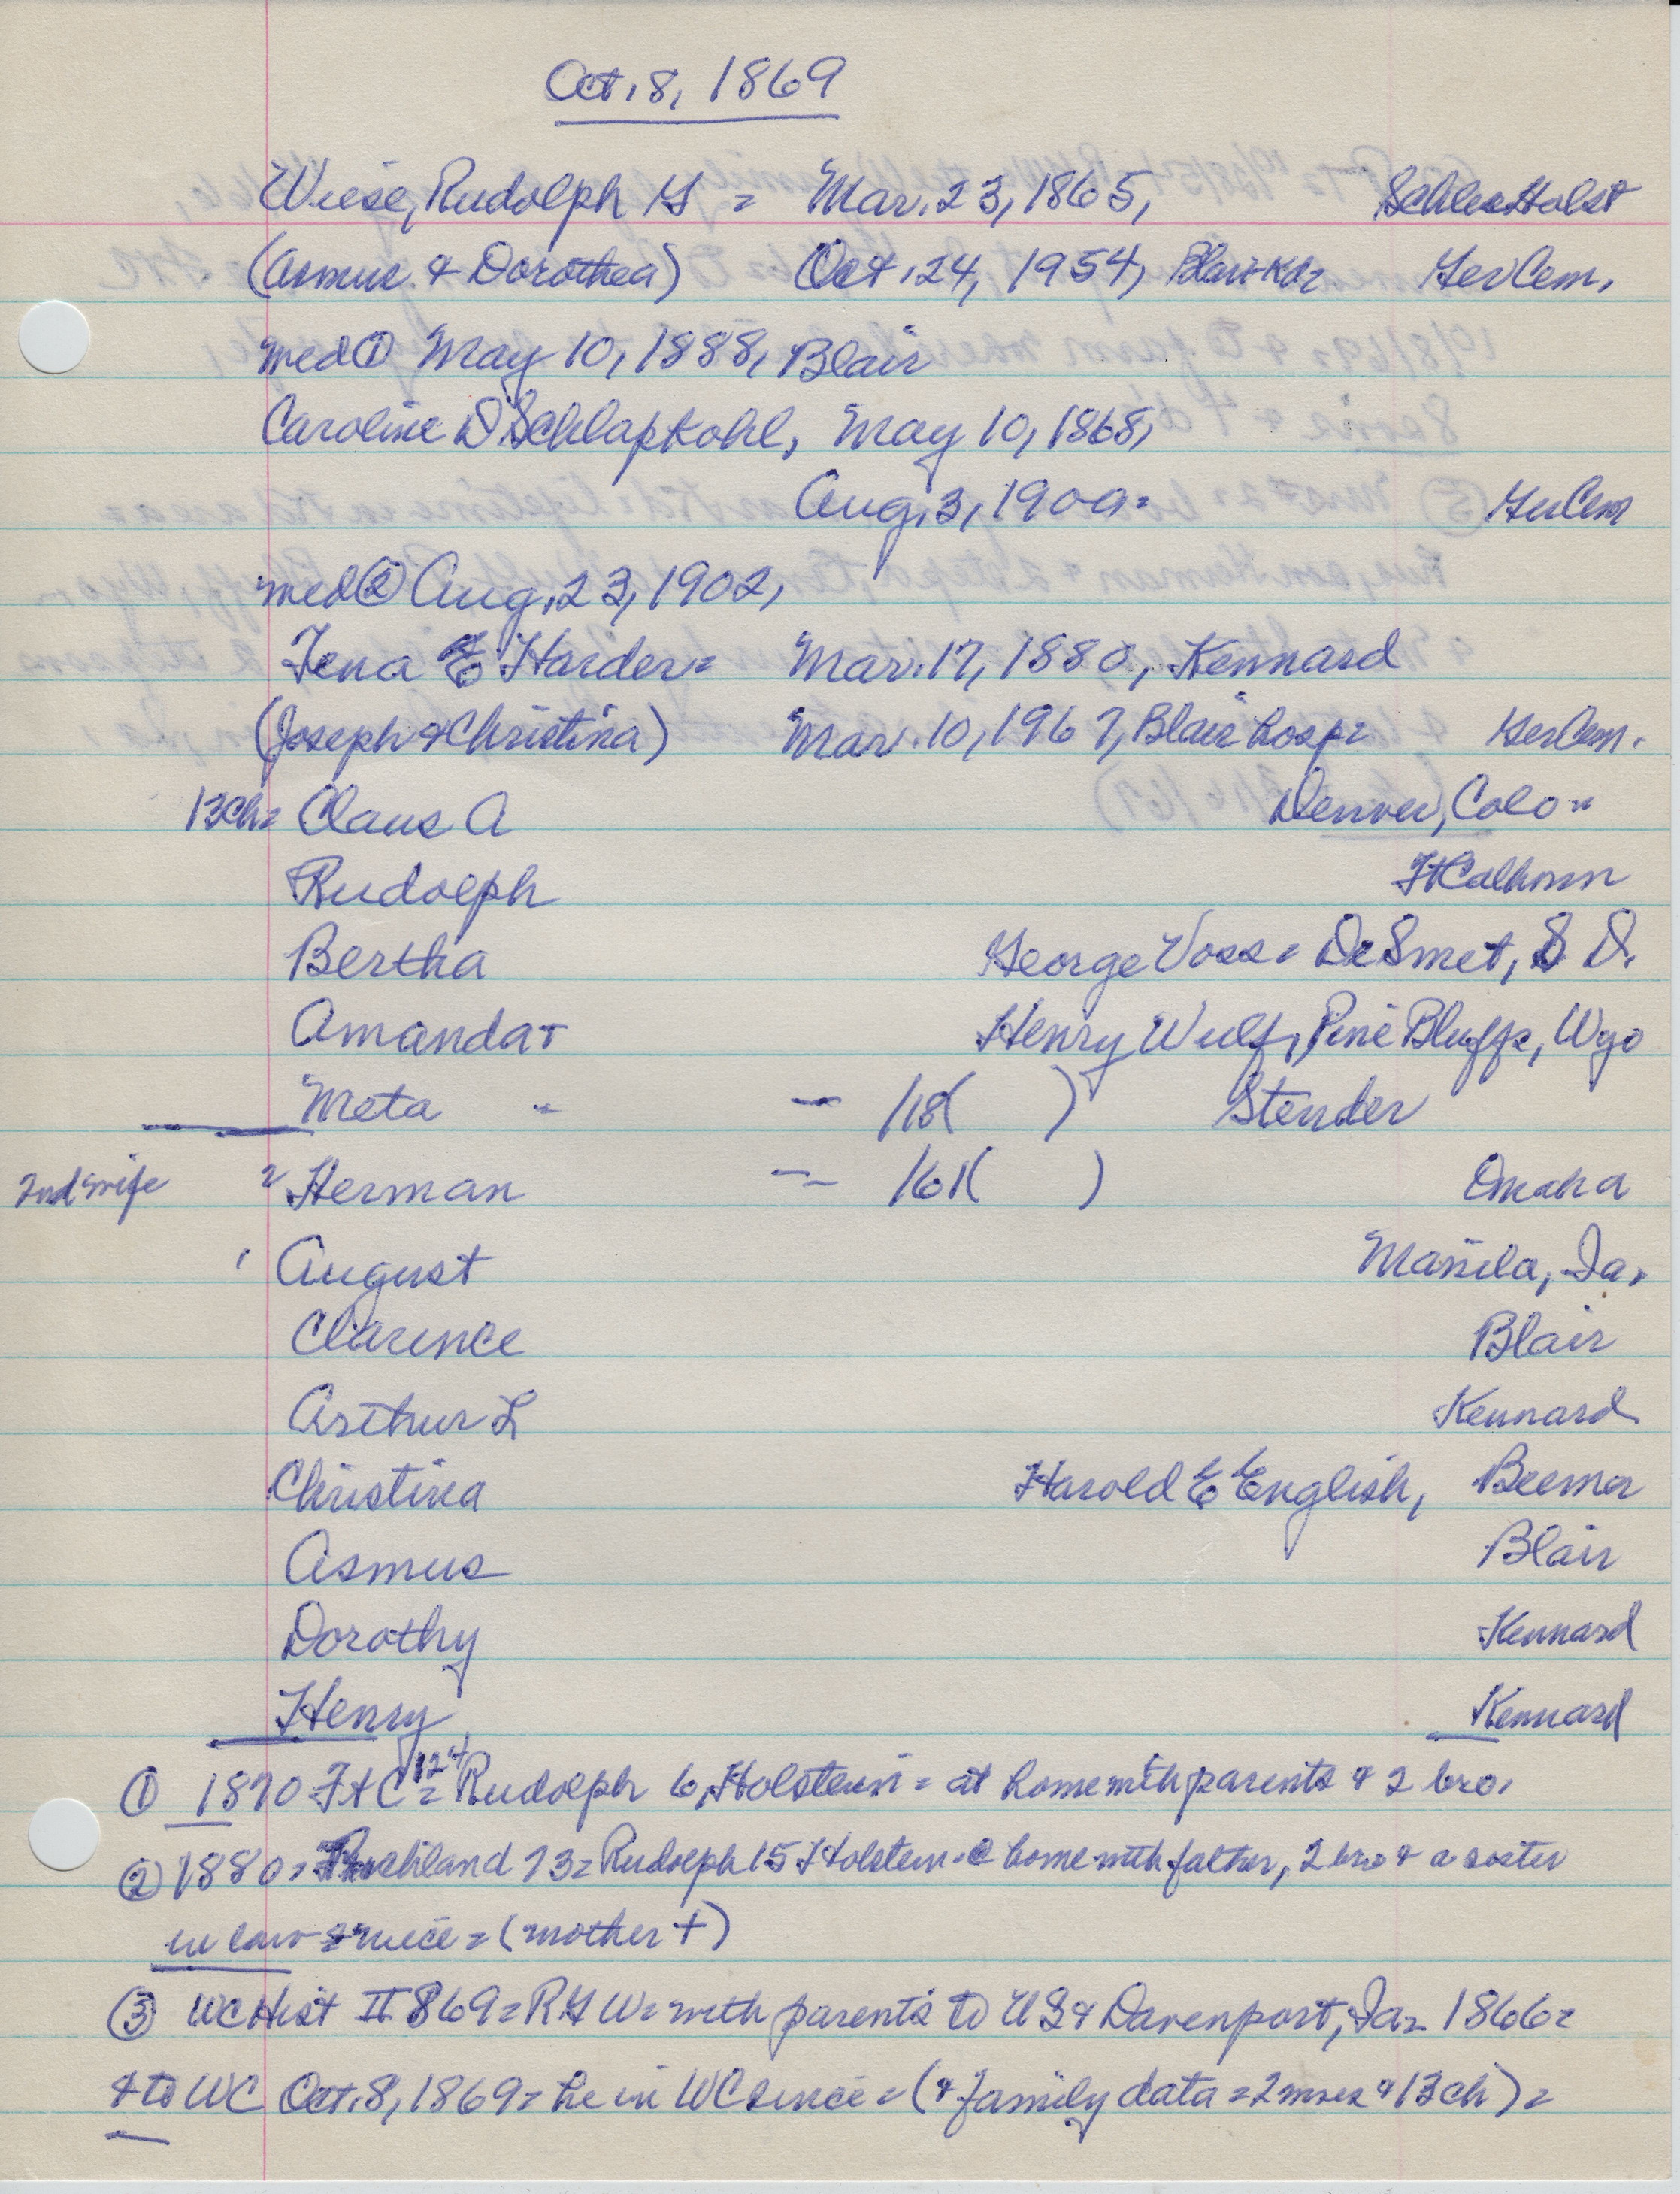 Oct. 8, 1869
Wiese, Rudolph G = Mar. 23, 1865, SchlesHolst
(Asmus & Dorothea) Oct. 24, 1954, Blair Kd= GerCem.
med ① May 10, 1888, Blair
Caroline D Schlapkohl, May 10, 1868,
Aug. 3, 1900= GerCem
med ② Aug. 23, 1902,
Tena E Harder= Mar. 17, 1880, Kennard
(Joseph & Christina) Mar. 10, 1967, Blair hosp= GerCem.
13ch= Claus A Denver, Colo
Rudolph FtCalhoun
Bertha George Voss = DeSmet, S D.
Amanda George Henry Wulf, Pine Bluffs, Wyo
Meta - - /18( ) Stender
2nd wife = Herman = /61( ) Omaha
August Manila, Ia.
Clarence Blair
Arthur L Kennard
Christina Harold E English, Beemer
Asmus Blair
Dorothy Kennard
Henry Kennard
① 1870 FtC 124 = Rudolph 6, Holstein = at home with parents & 2 bro.
② 1880 = Richland 73 = Rudolph 15 Holstein @ home with father, 2 bro & a sister
in law & niece = (mother +)
③ WCHist II 869 = RGW = with parents to US & Davenport, Ia = 1866 =
& to WC Oct. 8, 1869 = he in WC since = (& family data = 2 mres & 13 ch) =